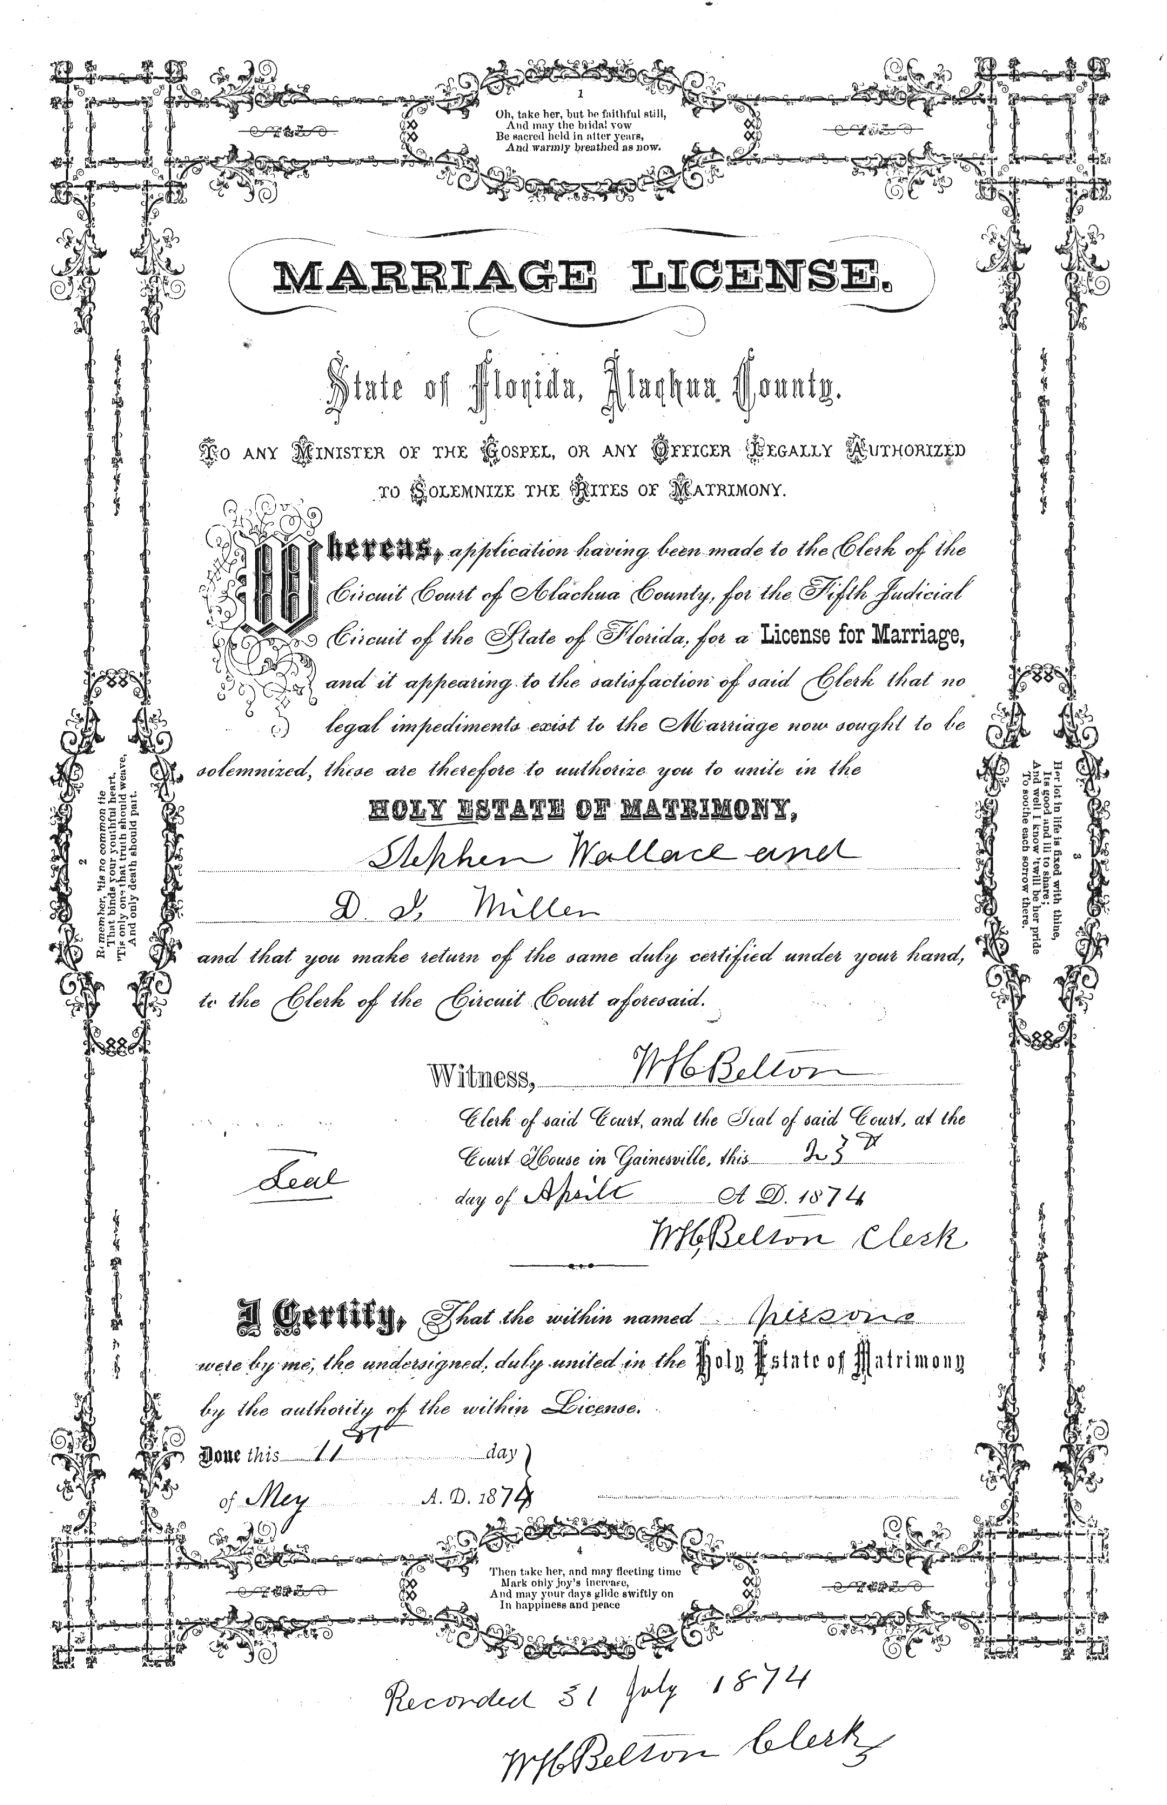 1
Oh, take her, but be faithful still,
And may the bridal vow
Be sacred held in after years,
And warmly breathed as now.
MARRIAGE LICENSE.
State of Florida, Alachua County.
TO ANY MINISTER OF THE GOSPEL, OR ANY OFFICER LEGALLY AUTHORIZED
TO SOLEMNIZE THE RITES OF MATRIMONY.
Whereas, application having been made to the Clerk of the
Circuit Court of Alachua County, for the Fifth Judicial
Circuit of the State of Florida, for a License for Marriage,
and it appearing to the satisfaction of said Clerk that no
legal impediments exist to the Marriage now sought to be
solemnized, these are therefore to authorize you to unite in the
HOLY ESTATE OF MATRIMONY,
Stephen Wallace and
D. Miller
and that you make return of the same duly certified under your hand,
to the Clerk of the Circuit Court aforesaid.
Witness, W H Belton
Clerk of said Court, and the Seal of said Court, at the
Court House in Gainesville, this 23
Seal
day of Aprile A D. 1874
W H Belton Clerk
I Certify, That the within named persons
were by me, the undersigned, duly united in the Holy Estate of Matrimony
by the authority of the within License.
Done this 11 day
of Mey A. D. 1874
2
Remember, 'tis no common tie
That binds your youthful heart,
'Tis only one that truth should weave,
And only death should part.
3
Her lot in life is fixed with thine,
Its good and ill to share;
And well I know 'twill be her pride
To soothe each sorrow there.
4
Then take her, and may fleeting time
Mark only joy's increase,
And may your days glide swiftly on
In happiness and peace
Recorded 31 July 1874
W H Belton Clerk